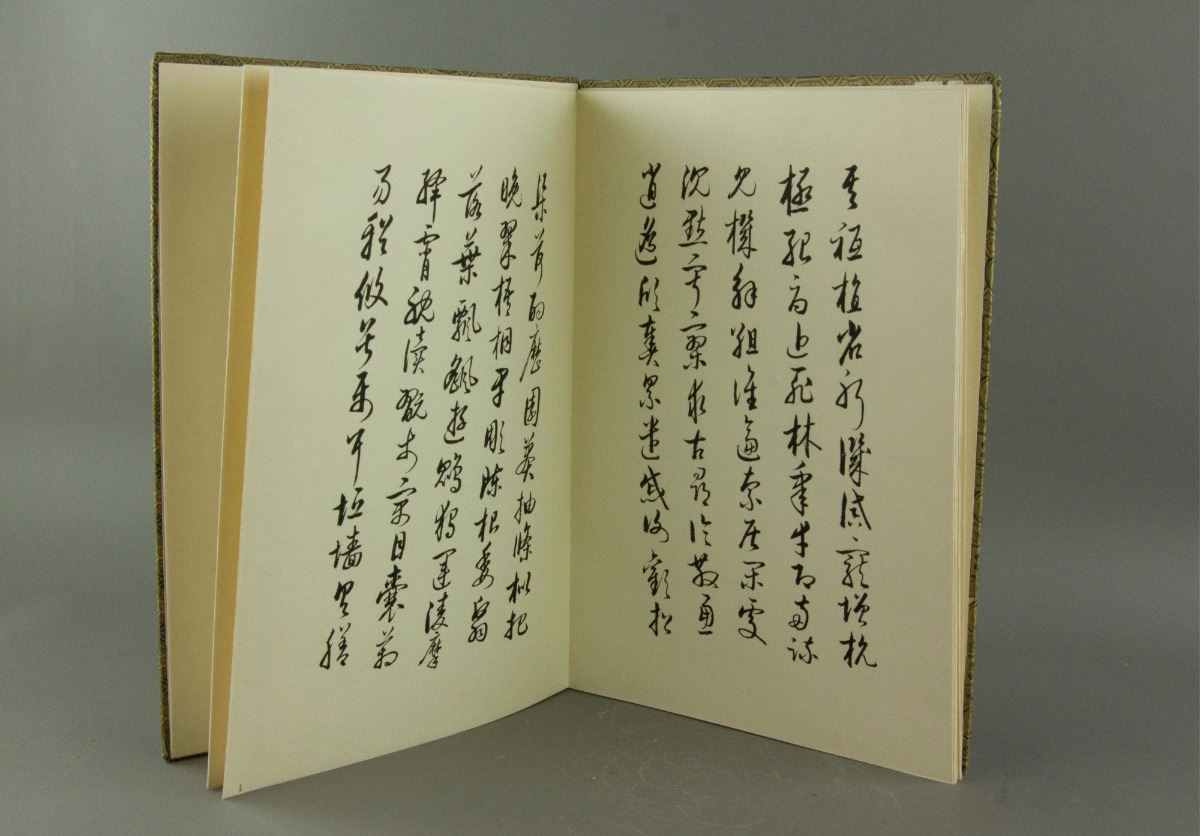 其祗植省躬譏誡寵增抗
極殆辱近恥林皋幸即兩疏
見機解組誰逼索居閑處
沈默寂寥求古尋論散慮
逍遙欣奏累遣慼謝歡招
渠荷的歷園莽抽條枇杷
晚翠梧桐早彫陳根委翳
落葉飄颻遊鵾獨運凌摩
絳霄耽讀翫市寓目囊箱
易輶攸畏屬耳垣墻具膳